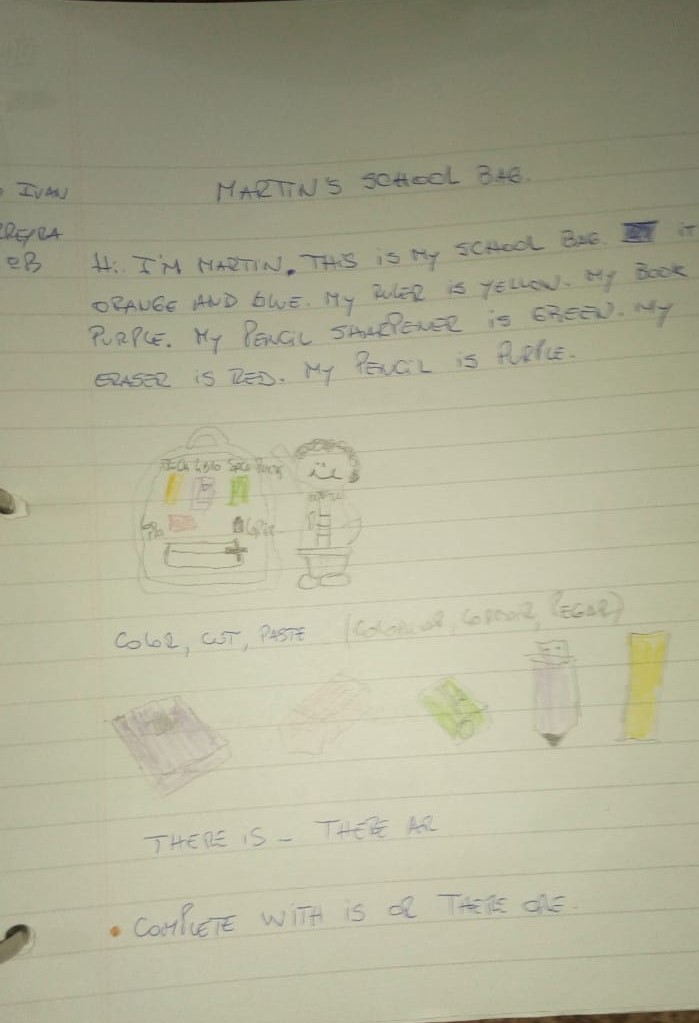 IVAN
MARTIN'S SCHOOL BAG.
Hi. I'M MARTIN. THIS is My SCHOOL BAG. iT
ORANGE AND blUE. My RULER is YELLOW. My BOOK
PURPLE. My PENCIL SHARPENER is GREEN. My
ERASER IS RED. My PENCIL is PURPLE.
COLOR, CUT, PASTE (COLOREAR, CORTAR, PEGAR)
THERE IS - THERE AR
• COMPLETE WITH IS OR THERE ORE.